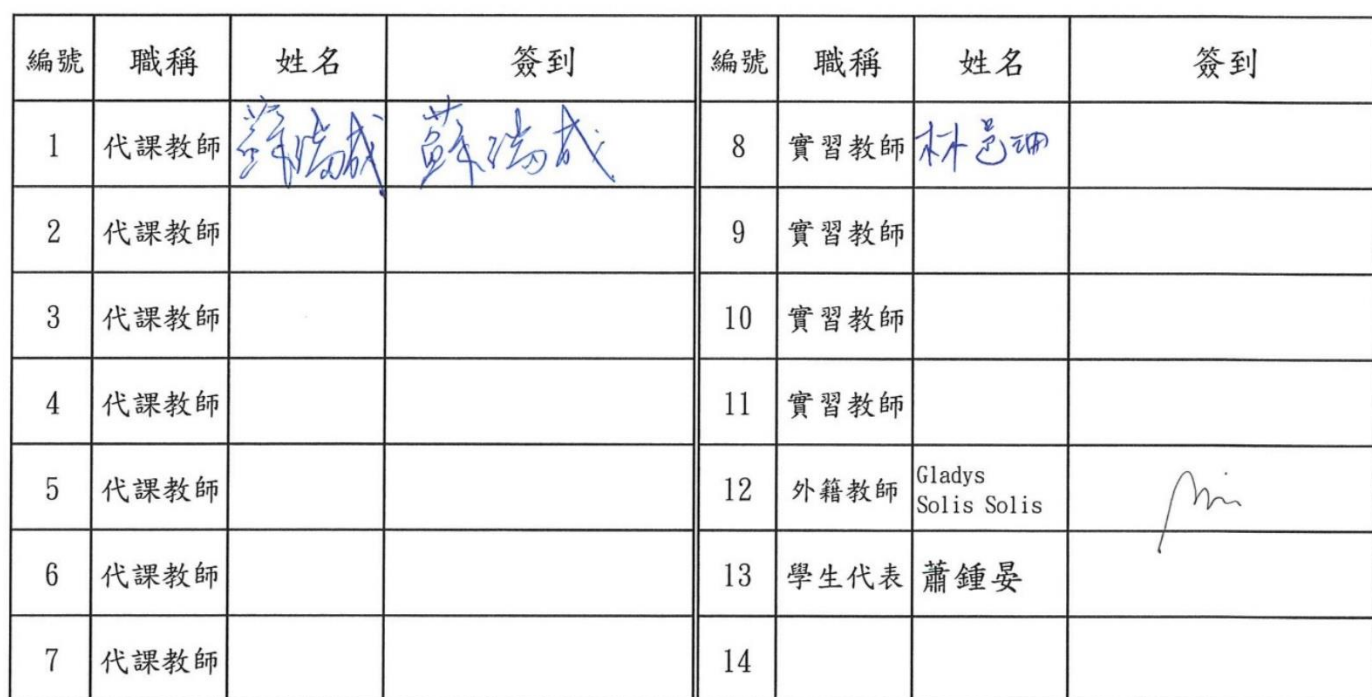 編號 職稱 姓名 簽到 編號 職稱 姓名 簽到
1 代課教師 蘇瑞成 蘇瑞成 8 實習教師 林邑珊
2 代課教師 9 實習教師
3 代課教師 10 實習教師
4 代課教師 11 實習教師
5 代課教師 12 外籍教師 Gladys
Solis Solis
6 代課教師 13 學生代表 蕭鍾晏
7 代課教師 14